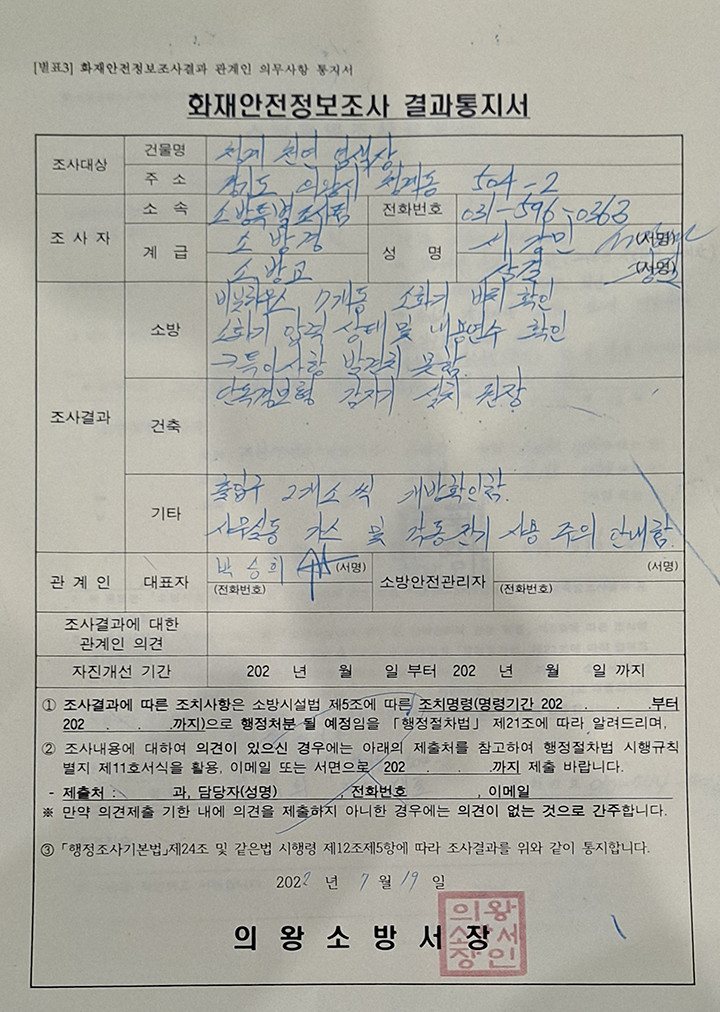 [별표3] 화재안전정보조사결과 관계인 의무사항 통지서
화재안전정보조사 결과통지서
조사대상
건물명 청계 천연 염색장
주 소 경기도 의왕시 청계동 504-2
조 사 자
소 속 소방특별조사팀 전화번호 031-596-0363
계 급 소방경 성 명 (서명)
소방교 (서명)
조사결과
소방
비닐하우스 7개동 소화기 비치 확인
소화기 압력 상태 및 내용연수 확인
특이사항 발견치 못함.
건축
단독경보형 감지기 설치 권장
기타
출입구 2개소 씩 개방확인함.
사무실동 가스 및 각동 전기 사용 주의 안내함.
관 계 인 대표자 박승희 (서명) 소방안전관리자 (서명)
(전화번호) (전화번호)
조사결과에 대한
관계인 의견
자진개선 기간 202 년 월 일 부터 202 년 월 일 까지
① 조사결과에 따른 조치사항은 소방시설법 제5조에 따른 조치명령(명령기간 202 . . .부터
202 . . .까지)으로 행정처분 될 예정임을 「행정절차법」 제21조에 따라 알려드리며,
② 조사내용에 대하여 의견이 있으신 경우에는 아래의 제출처를 참고하여 행정절차법 시행규칙
별지 제11호서식을 활용, 이메일 또는 서면으로 202 . . .까지 제출 바랍니다.
- 제출처 : 과, 담당자(성명) , 전화번호 , 이메일
※ 만약 의견제출 기한 내에 의견을 제출하지 아니한 경우에는 의견이 없는 것으로 간주합니다.
③ 「행정조사기본법」제24조 및 같은법 시행령 제12조제5항에 따라 조사결과를 위와 같이 통지합니다.
2022 년 7 월 19 일
의 왕 소 방 서 장
의왕
소서
장인